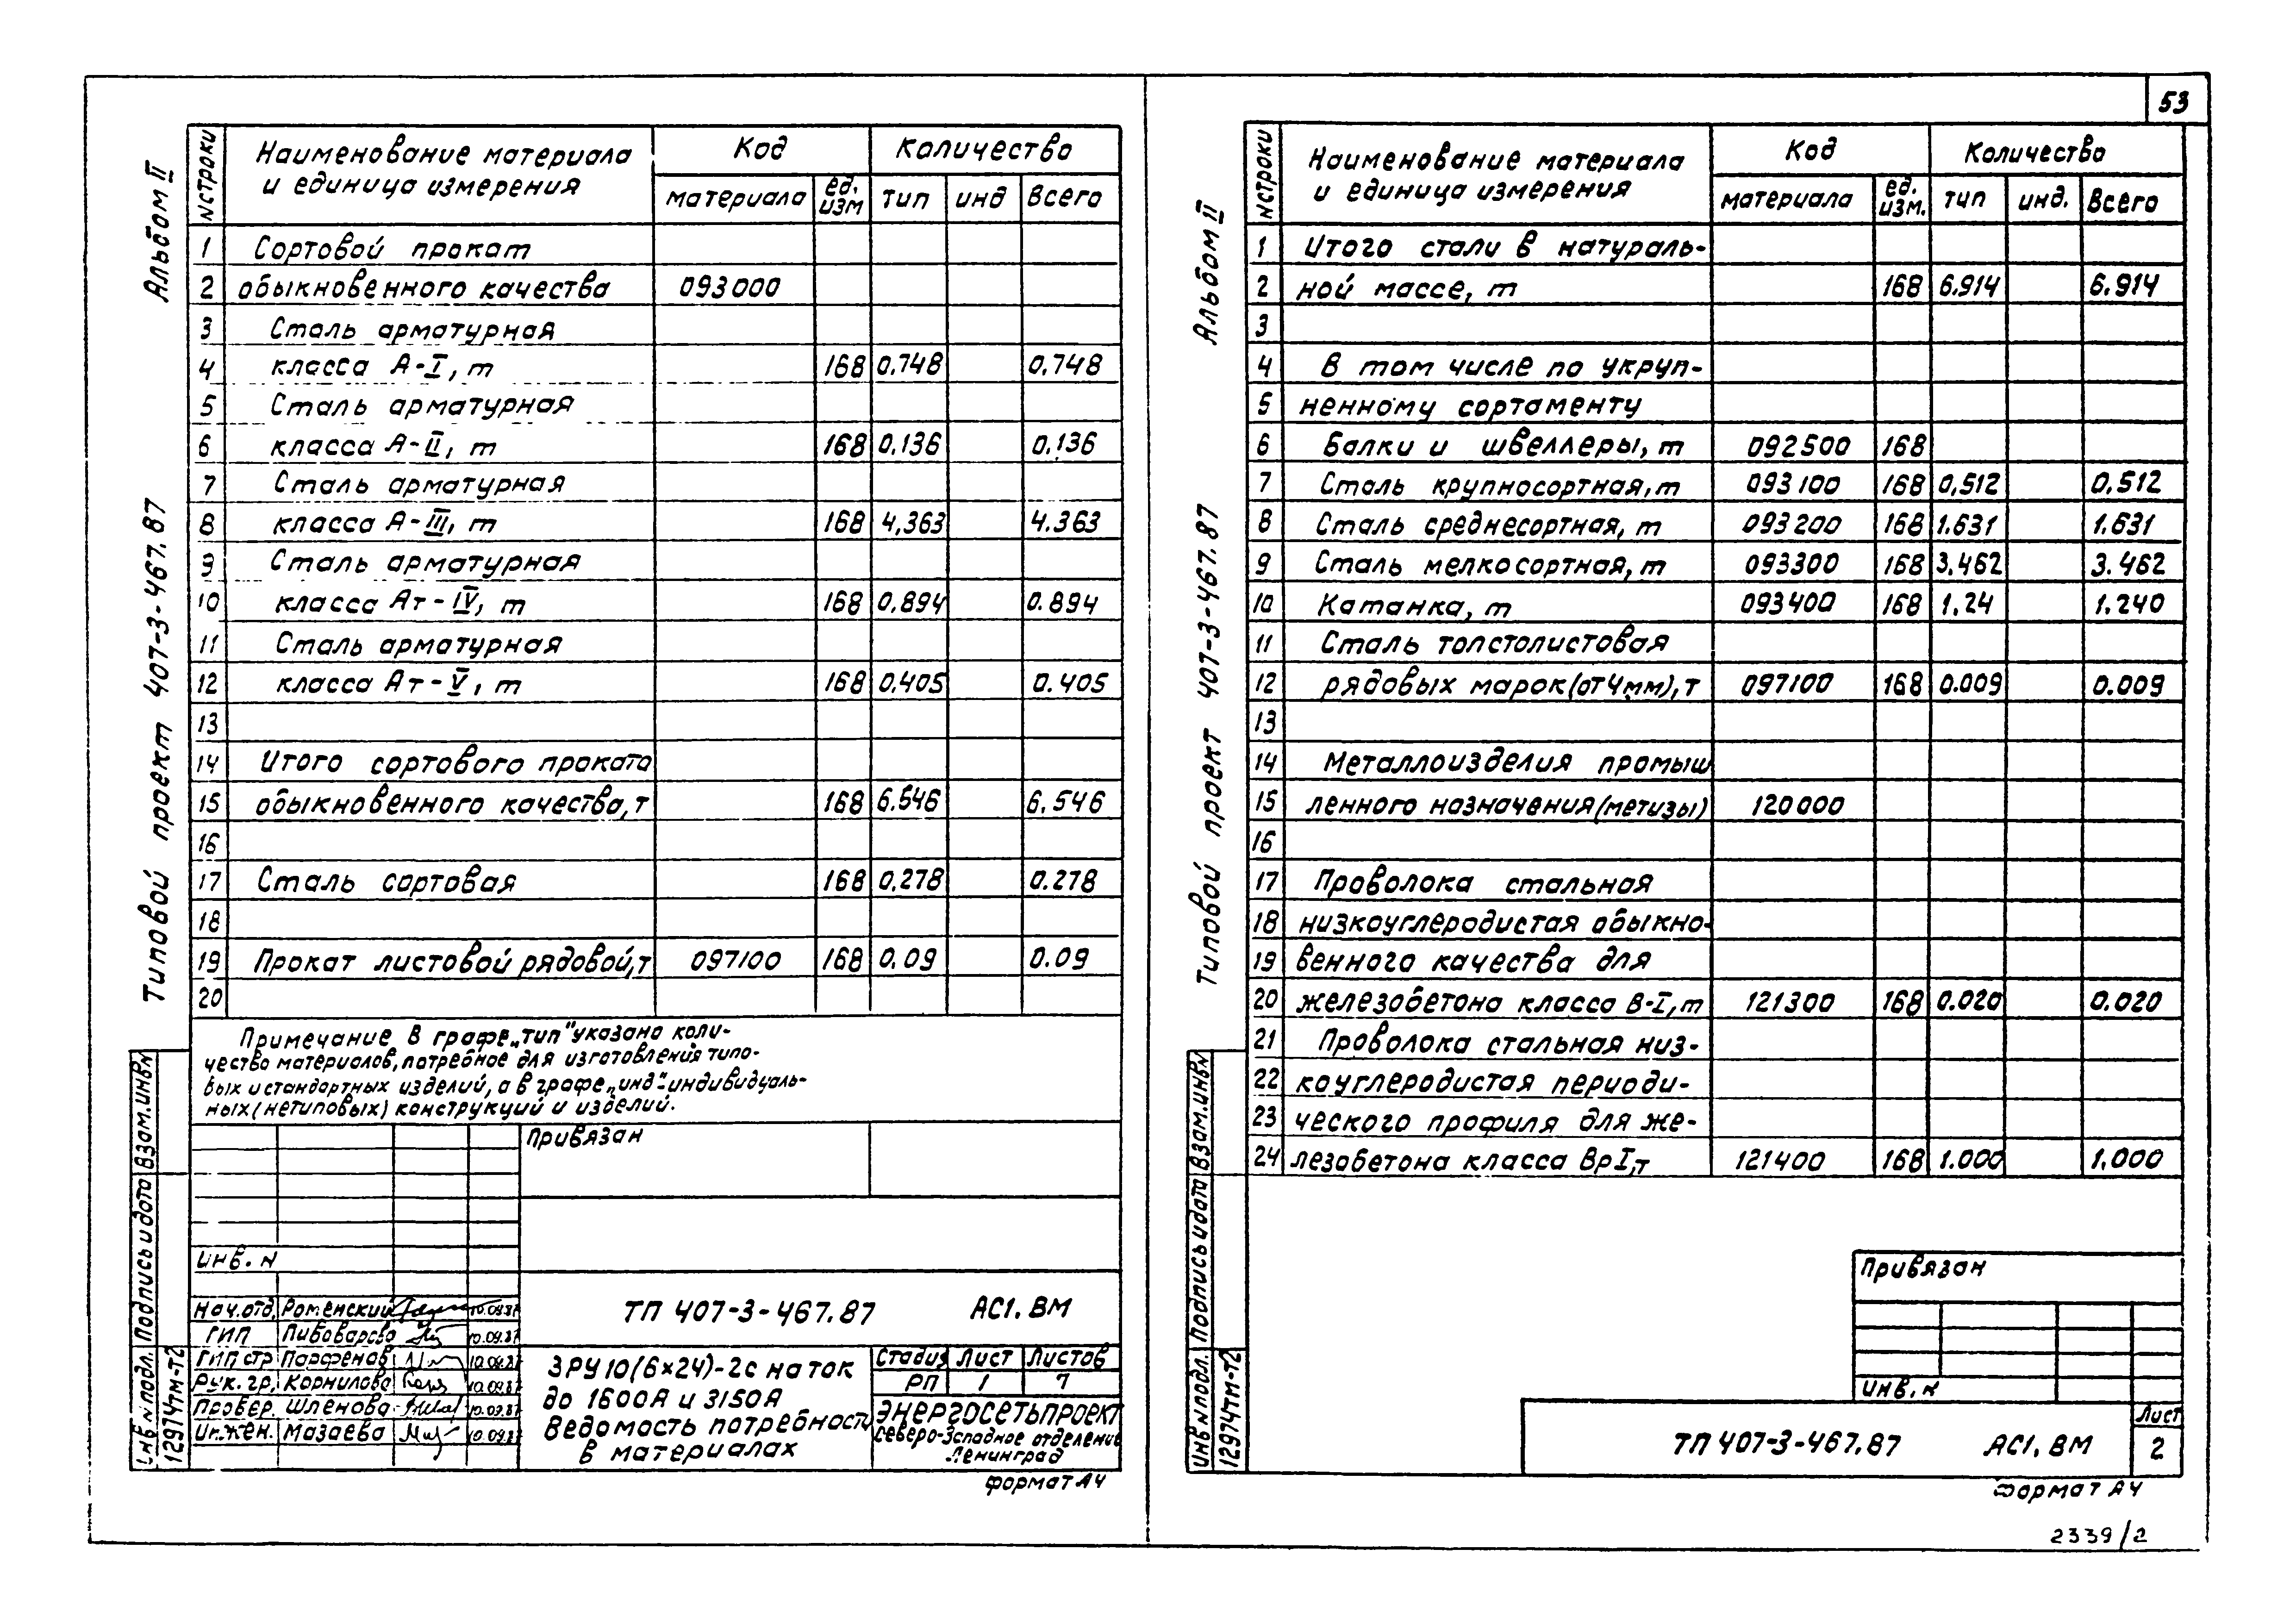 53
Альбом II
Типовой проект 407-3-467.87
N строки | Наименование материала и единица измерения | Код | Количество
материала | ед. изм | тип | инд | Всего
1 Сортовой прокат
2 обыкновенного качества 093000
3 Сталь арматурная
4 класса А-I, т 168 0,748 0,748
5 Сталь арматурная
6 класса А-II, т 168 0,136 0,136
7 Сталь арматурная
8 класса А-III, т 168 4,363 4.363
9 Сталь арматурная
10 класса Ат-IV, т 168 0,894 0.894
11 Сталь арматурная
12 класса Ат-V, т 168 0.405 0.405
13
14 Итого сортового проката
15 обыкновенного качества, т 168 6.546 6,546
16
17 Сталь сортовая 168 0,278 0.278
18
19 Прокат листовой рядовой, т 097100 168 0,09 0.09
20
Примечание В графе „тип" указано коли-
чество материалов, потребное для изготовления типо-
вых и стандартных изделий, а в графе „инд"-индивидуаль-
ных (нетиповых) конструкций и изделий.
Привязан
Инв. N
Нач.отд. Роменский 10.09.87
ГИП Пивоварова 10.09.87
ГИП стр Парфенов 10.09.87
Рук. гр. Корнилова 10.09.87
Провер. Шленова 10.09.87
Инжен. Мазаева 10.09.87
ТП 407-3-467.87 АС1.ВМ
ЗРУ 10(6×24)-2с на ток
до 1600А и 3150А
Ведомость потребности
в материалах
Стадия Лист Листов
РП 1 7
Энергосетьпроект
Северо-Западное отделение
Ленинград
Формат А4
Взам.инв.N
Подпись и дата
Инв N подл.
12974тм-т2
Альбом II
Типовой проект 407-3-467.87
N строки | Наименование материала и единица измерения | Код | Количество
материала | ед. изм. | тип | инд. | Всего
1 Итого стали в натураль-
2 ной массе, т 168 6.914 6.914
3
4 В том числе по укруп-
5 ненному сортаменту
6 Балки и швеллеры, т 092500 168
7 Сталь крупносортная, т 093100 168 0,512 0,512
8 Сталь среднесортная, т 093200 168 1.631 1.631
9 Сталь мелкосортная, т 093300 168 3.462 3.462
10 Катанка, т 093400 168 1.24 1.240
11 Сталь толстолистовая
12 рядовых марок (от 4мм), т 097100 168 0.009 0.009
13
14 Металлоизделия промыш
15 ленного назначения (метизы) 120000
16
17 Проволока стальная
18 низкоуглеродистая обыкно-
19 венного качества для
20 железобетона класса В-I, т 121300 168 0.020 0.020
21 Проволока стальная низ-
22 коуглеродистая периоди-
23 ческого профиля для же-
24 лезобетона класса Вр I, т 121400 168 1.000 1.000
Привязан
Инв. N
ТП 407-3-467.87 АС1.ВМ
Лист
2
Формат А4
Взам.инв.N
Подпись и дата
Инв N подл.
12974тм-т2
2339/2